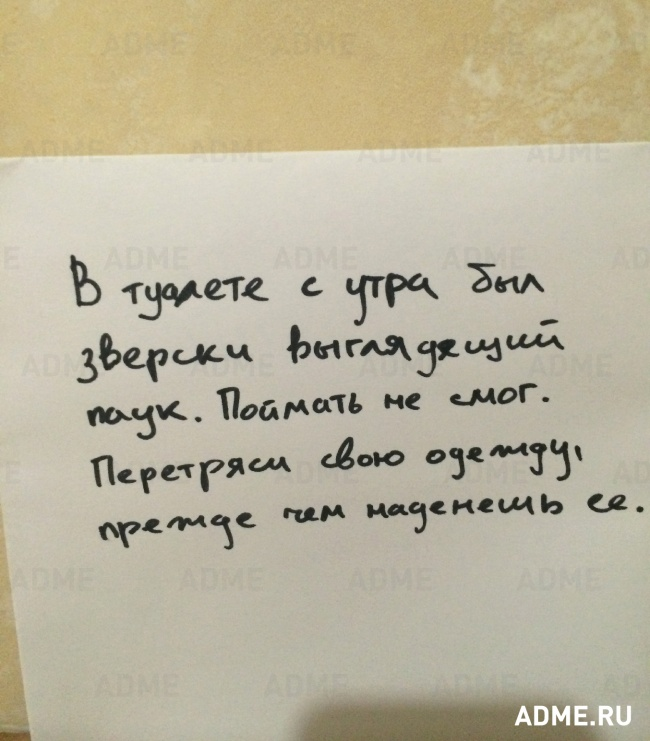 В туалете с утра был
зверски выглядящий
паук. Поймать не смог.
Перетряси свою одежду,
прежде чем наденешь ее.
ADME.RU